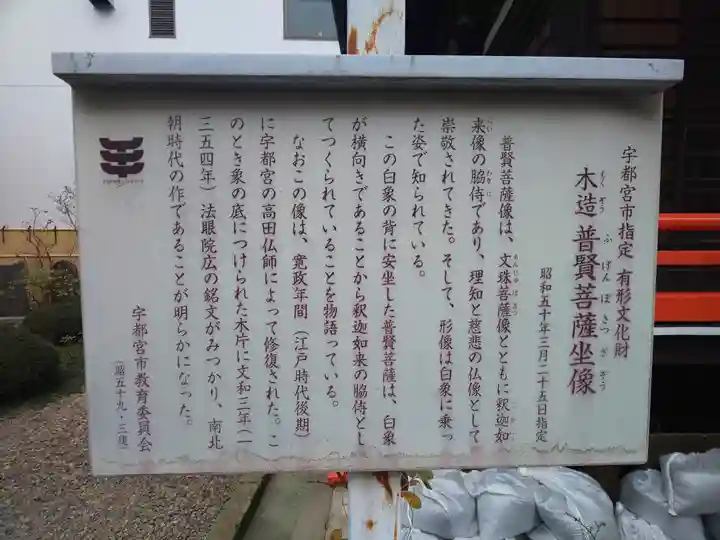 宇都宮市指定 有形文化財
木造 普賢菩薩坐像
もくぞう ふげんぼさつざぞう
昭和五十年三月二十五日指定
普賢菩薩像は、文珠菩薩像とともに釈迦如
来像の脇侍であり、理知と慈悲の仏像として
崇敬されてきた。そして、形像は白象に乗っ
た姿で知られている。
この白象の背に安坐した普賢菩薩は、白象
が横向きであることから釈迦如来の脇侍とし
てつくられていることを物語っている。
なおこの像は、寛政年間（江戸時代後期）
に宇都宮の高田仏師によって修復された。こ
のとき象の底につけられた木片に文和三年（一
三五四年）法眼院広の銘文がみつかり、南北
朝時代の作であることが明らかになった。
宇都宮市教育委員会
（昭五十九・三復）